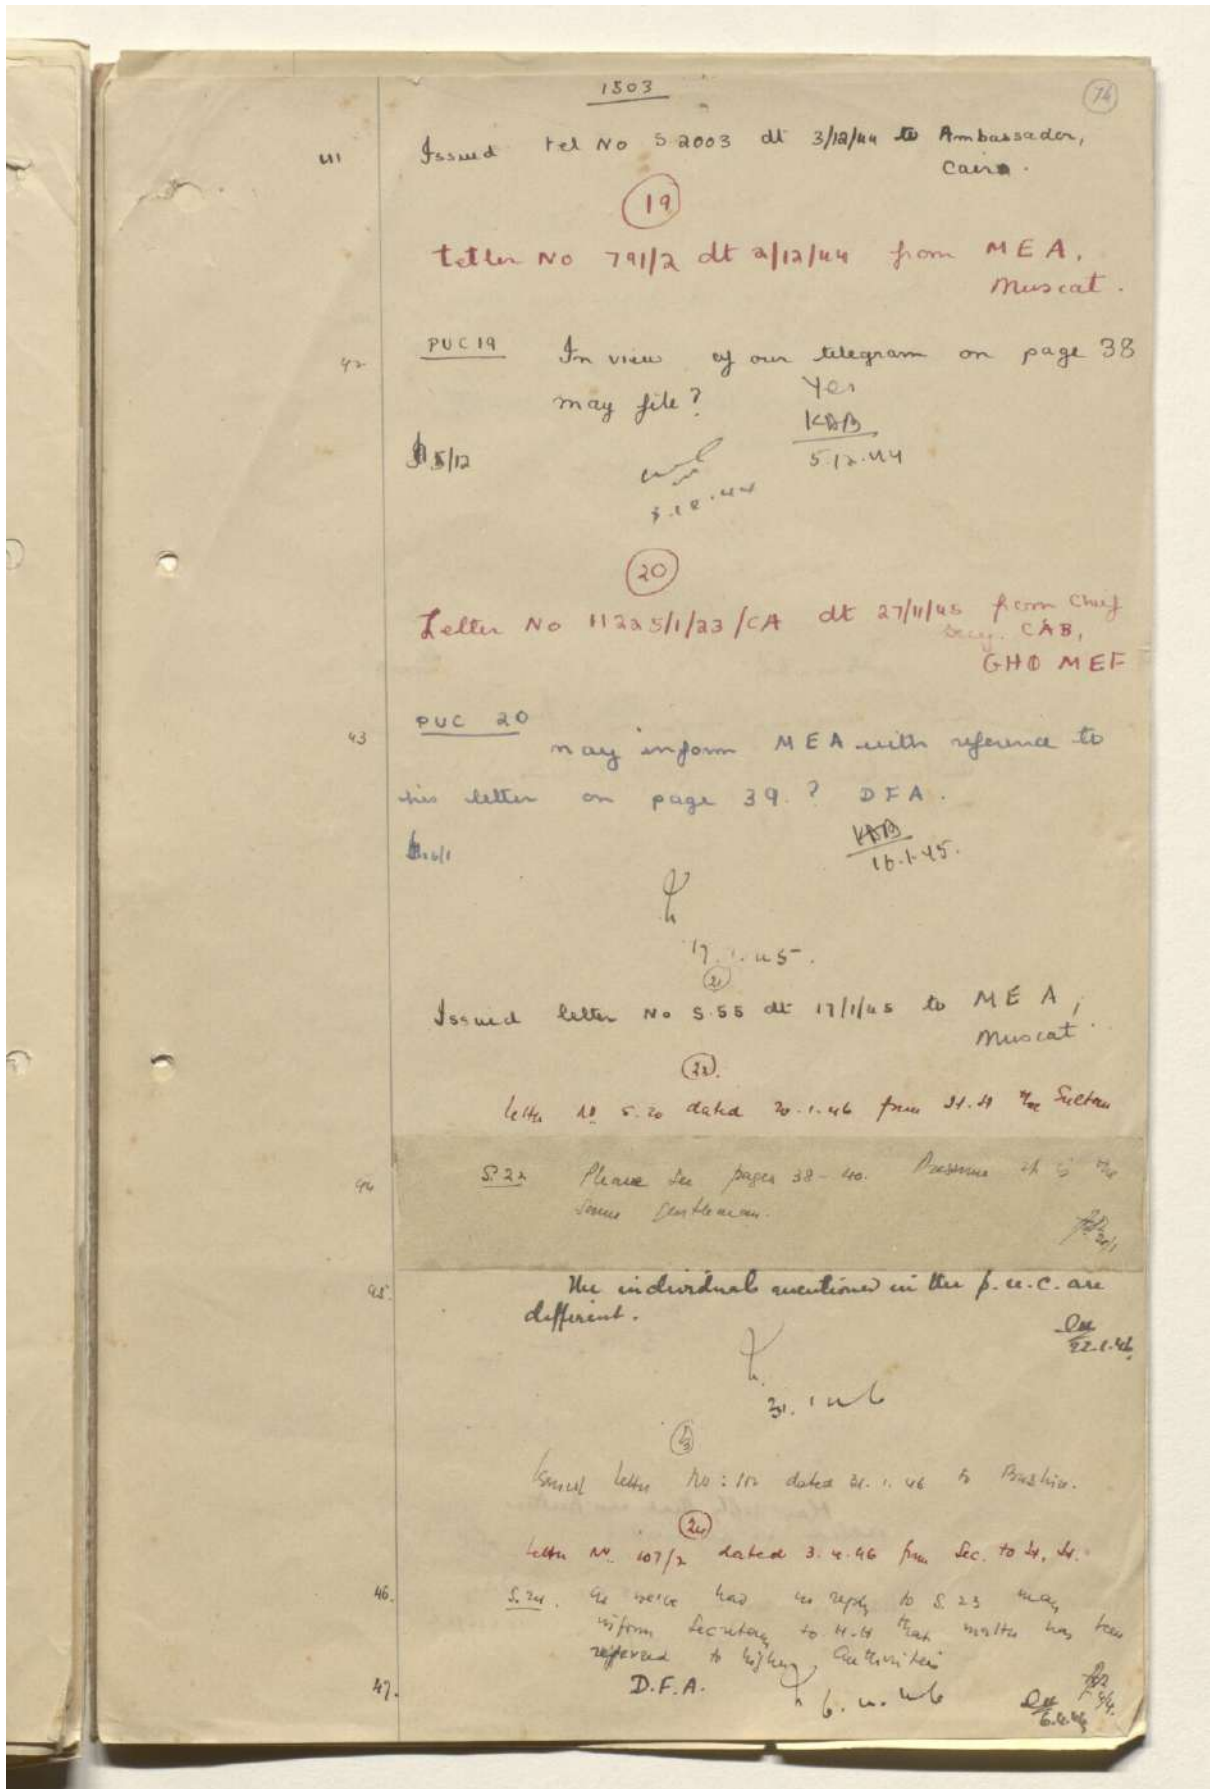 1503
76
41 Issued tel No S 2003 dt 3/12/44 to Ambassador,
Cairo.
19
Letter No 791/2 dt 2/12/44 from MEA,
Muscat.
42 PUC 19 In view of our telegram on page 38
may file? Yes
KAB
5/12 5.12.44
5.12.44
20
Letter No 11225/1/23/CA dt 27/11/45 from Chief
Secy. CAB,
GHQ MEF
43 PUC 20
may inform MEA with reference to
his letter on page 39.? DFA.
KAB
16.1.45.
17.1.45.
21
Issued letter No S.55 dt 17/1/45 to MEA,
Muscat
22.
Letter No S.20 dated 20.1.46 from H.H the Sultan
44 S.22 Please see pages 38-40. Presume it is the
same gentleman.
45. The individuals mentioned in the p.u.c. are
different.
22.1.46
31.1.46
23
Issued letter No: 112 dated 31.1.46 to Bushire.
24
Letter No. 107/2 dated 3.4.46 from Sec. to H.H.
46. S.24. As we have had no reply to S.23 may
inform Secretary to H.H that matter has been
referred to higher authorities
47. D.F.A.
6.4.46
6.4.46